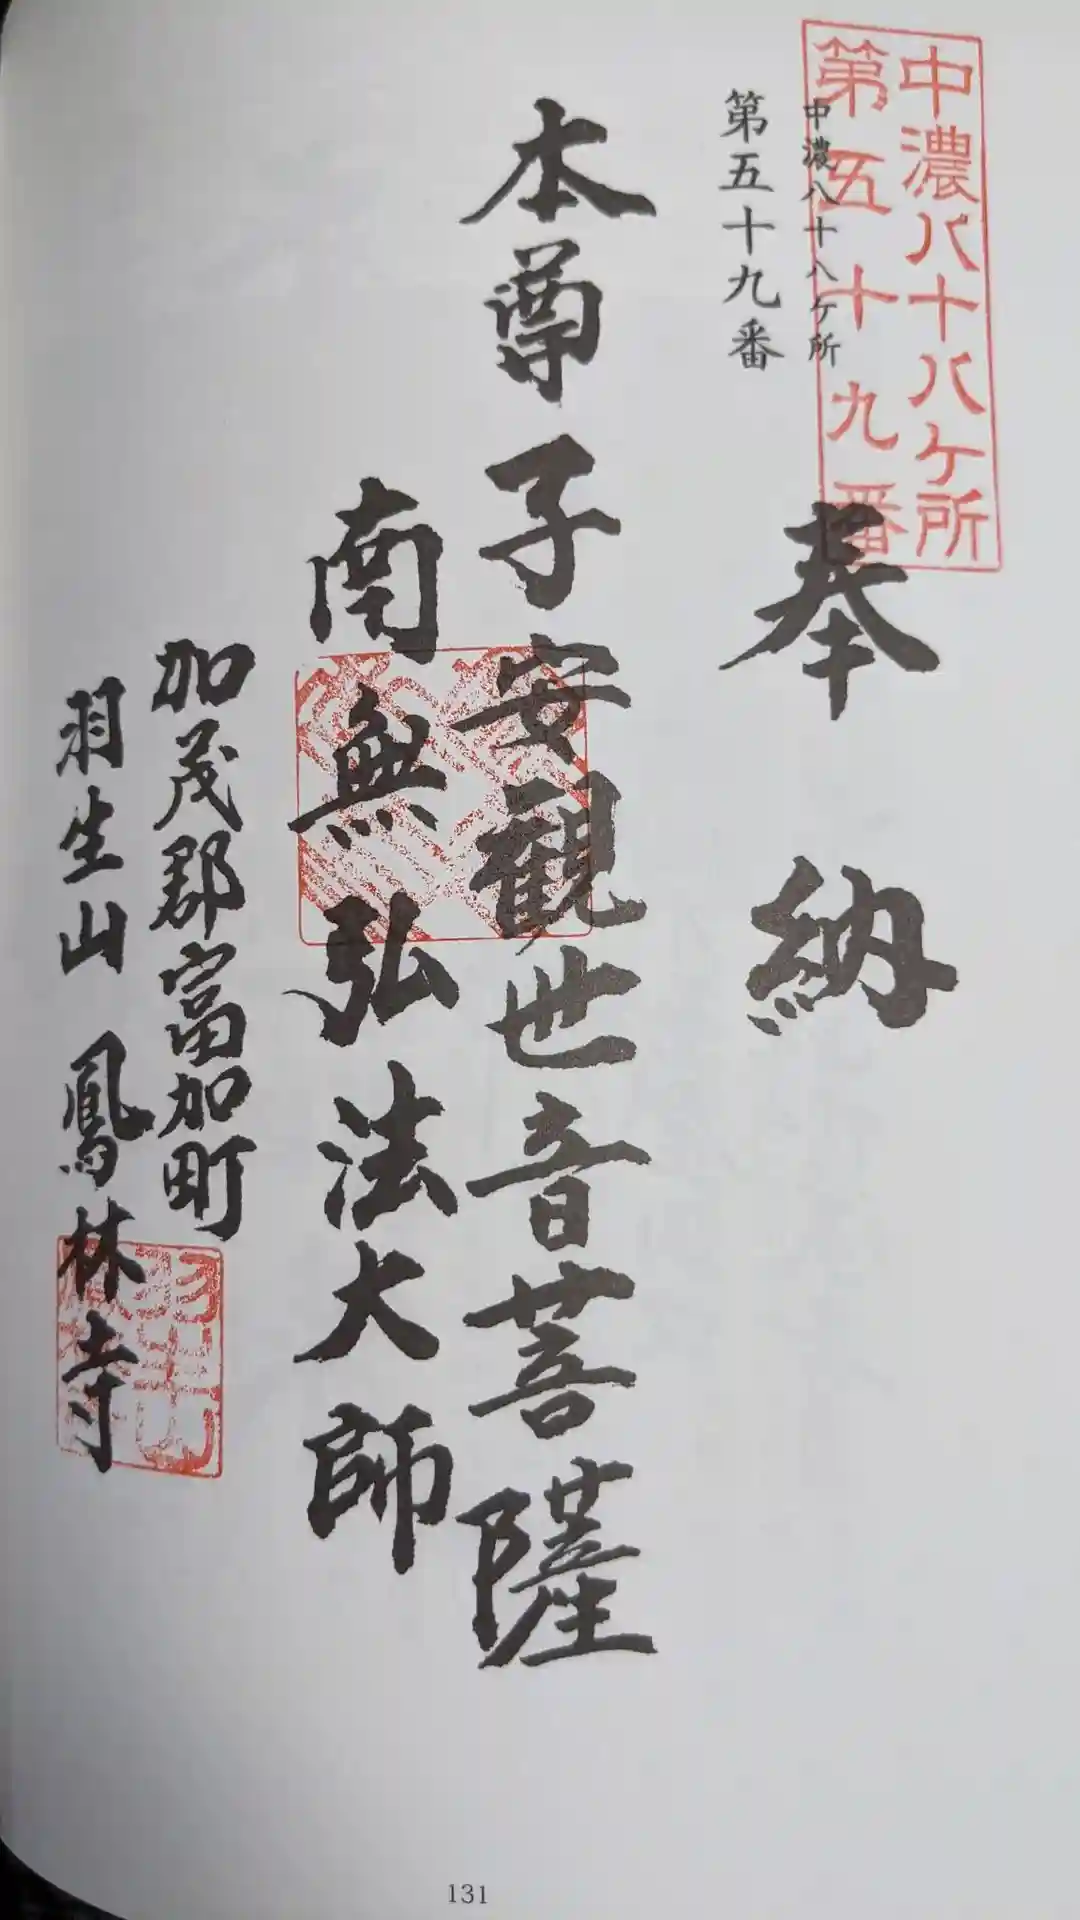 中濃八十八ケ所
第五十九番
中濃八十八ケ所
第五十九番
奉納
本尊子安観世音菩薩
南無弘法大師
加茂郡富加町
羽生山鳳林寺
羽生山
131